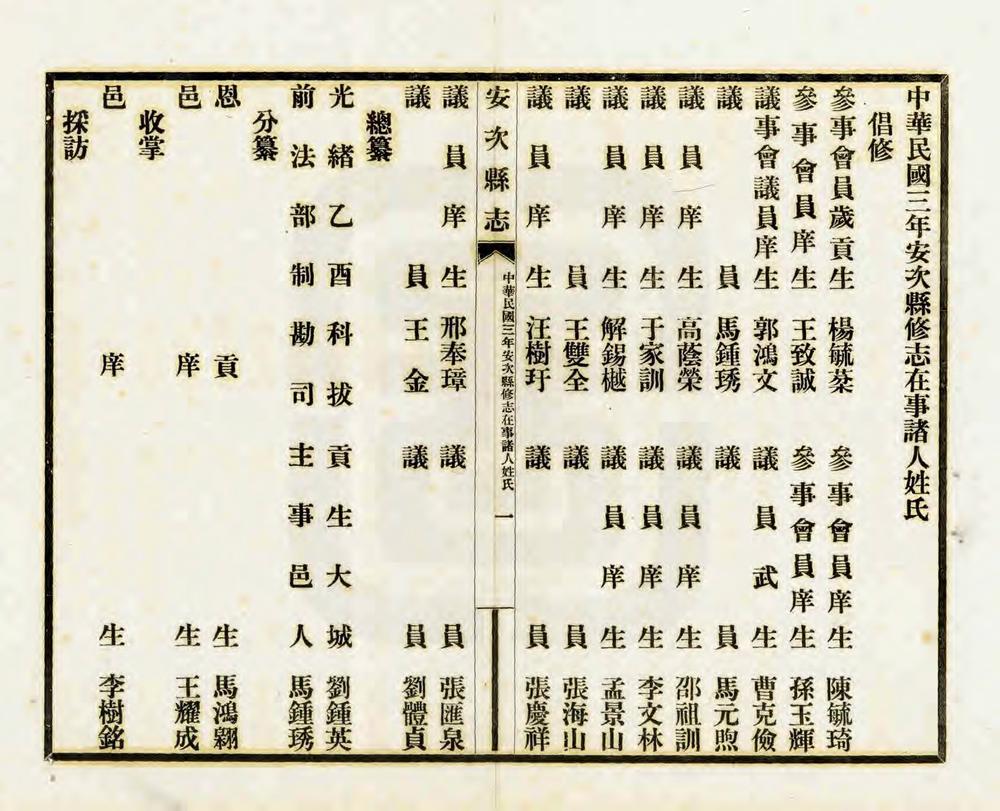 中華民國三年安次縣修志在事諸人姓氏
倡修
參事會員歲貢生楊毓棻 參事會員庠生陳毓琦
參事會員庠生王致誠 參事會員庠生孫玉輝
議事會議員庠生郭鴻文 議員武生曹克儉
議員馬鍾琇 議員馬元煦
議員庠生高蔭榮 議員庠生邵祖訓
議員庠生于家訓 議員庠生李文林
議員庠生解錫樾 議員庠生孟景山
議員王雙全 議員張海山
議員庠生汪樹玗 議員張慶祥
安次縣志 中華民國三年安次縣修志在事諸人姓氏 一
議員庠生邢奉璋 議員張匯泉
議員王金 議員劉體貞
總纂
光緒乙酉科拔貢生大城劉鍾英
前法部制勘司主事邑人馬鍾琇
分纂
恩貢生馬鴻翱
邑庠生王耀成
收掌
邑庠生李樹銘
採訪